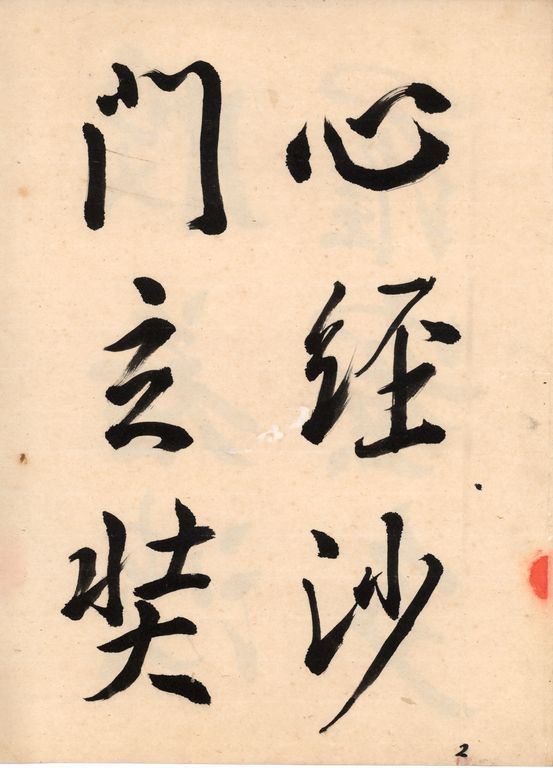 心經沙
門玄奘
2